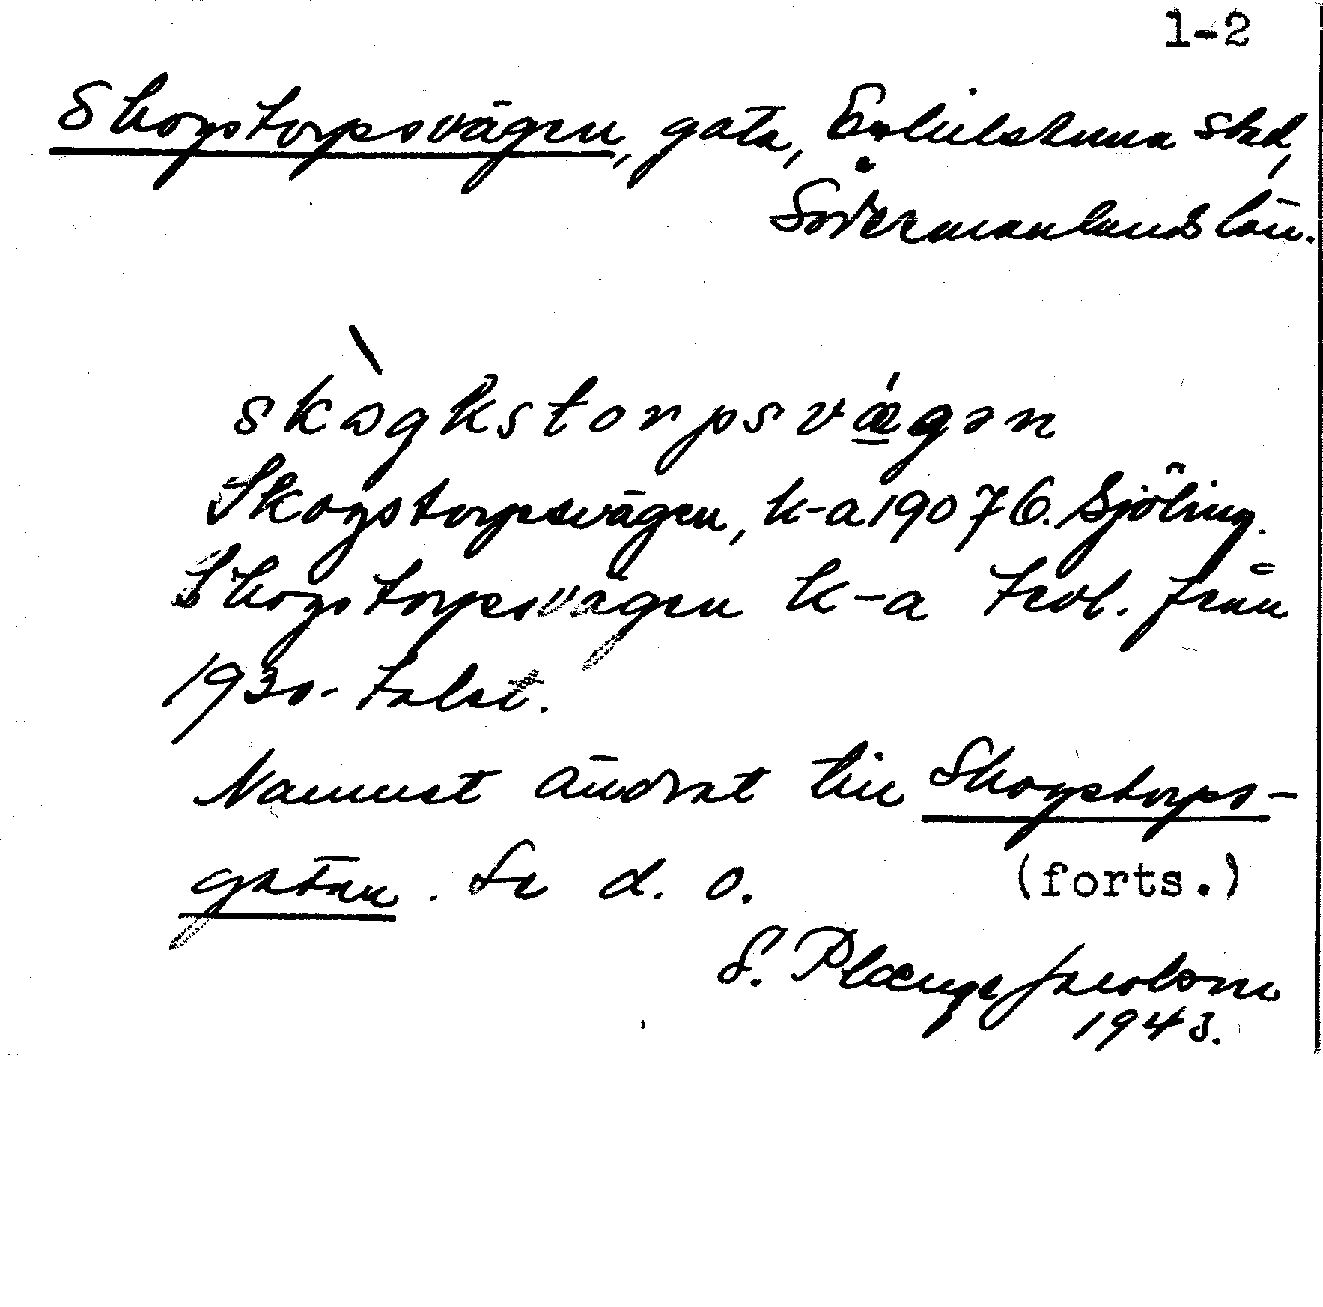 1-2
Skogstorpsvägen, gata, Eskilstuna stad,
Södermanlands län.
skògkstorpsvǽgən
Skogstorpsvägen, k-a 1907 G. Sjöling.
Skogstorpsvägen k-a trol. från
1930-talet.
Namnet ändrat till Skogstorps-
gatan. Se d. o.
(forts.)
S. Plænge Jacobson
1943.